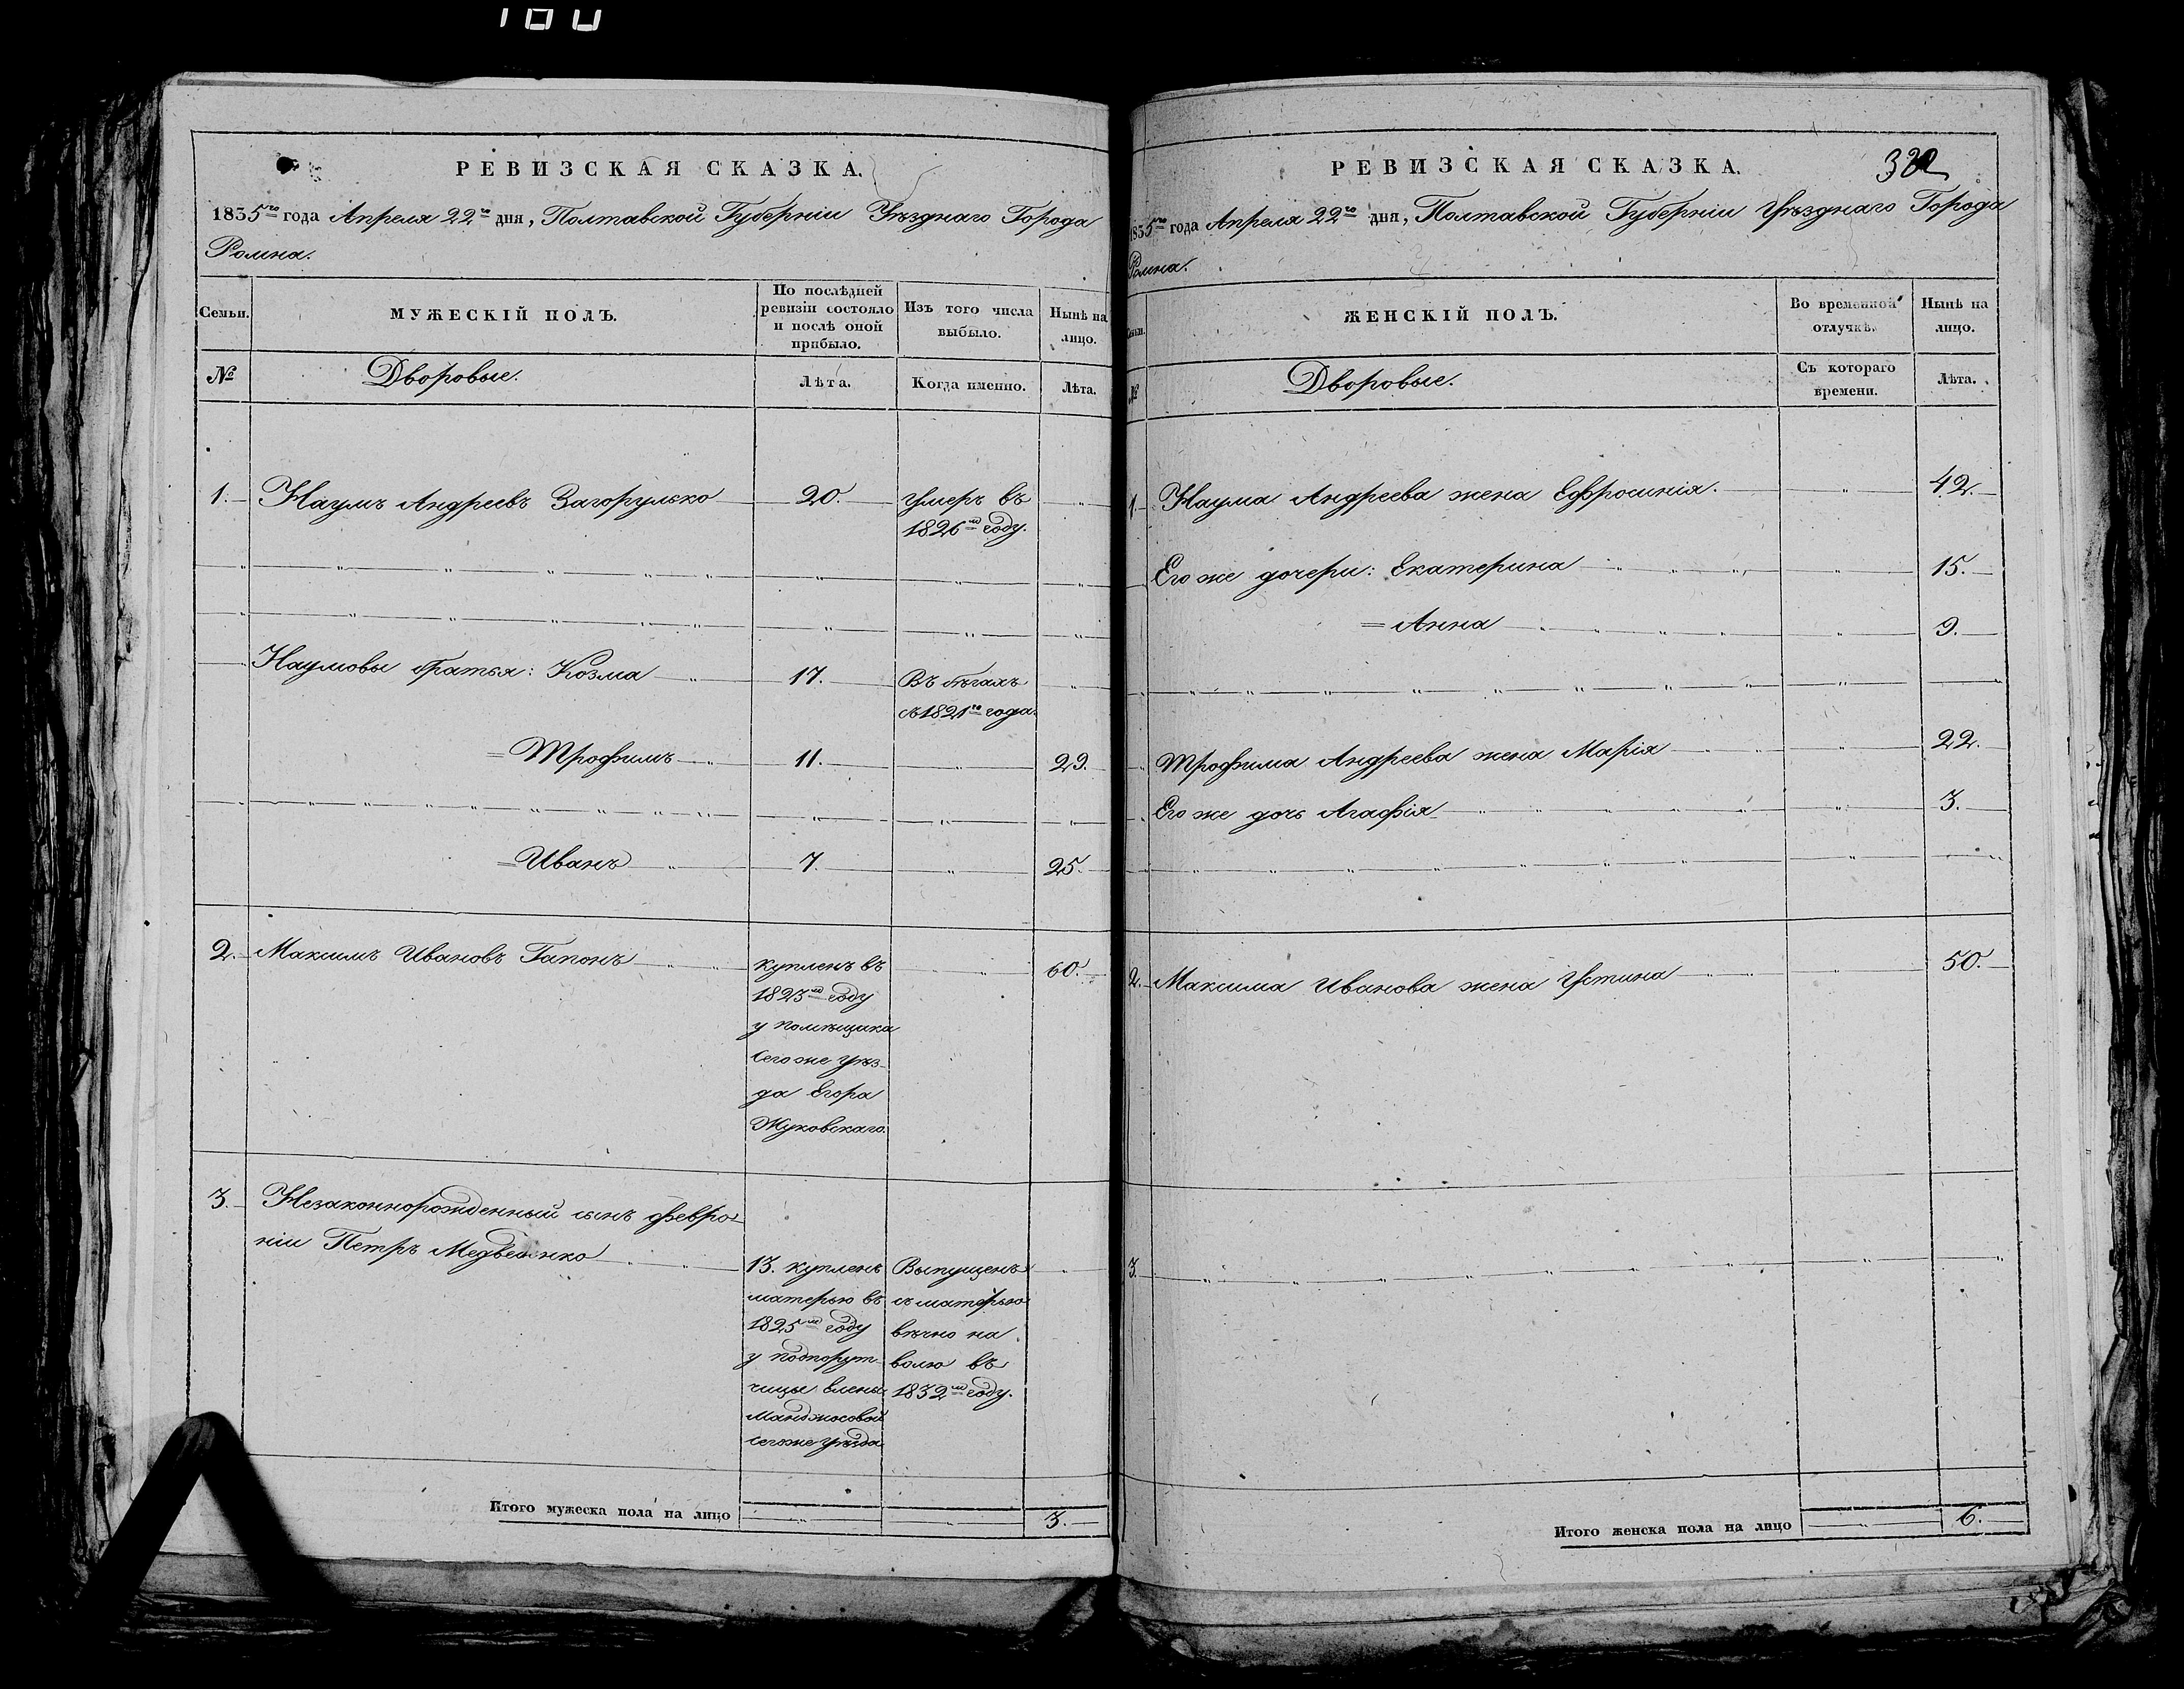 160
РЕВИЗСКАЯ СКАЗКА.
1835го года Апреля 22го дня, Полтавской Губерніи Уѣзднаго Города
Ромна.
Семьи.
МУЖЕСКІЙ ПОЛЪ.
По послѣдней
ревизіи состояло
и послѣ оной
прибыло.
Изъ того числа
выбыло.
Нынѣ на
лицо.
№
Дворовые.
Лѣта.
Когда именно.
Лѣта.
1. Наумъ Андреевъ Загорулько 20. умеръ въ
1826м году.
Наумовы братья: Козма 17. Въ бѣгахъ
съ 1821го года.
= Трофимъ 11. 29.
= Иванъ 7. 25.
2. Максимъ Ивановъ Гапонъ 60.
купленъ въ
1823м году
у помѣщика
сего же уѣз-
да Егора
Жуковскаго.
3. Незаконнорожденный сынъ Февро-
ніи Петръ Медведенко
13. купленъ
матерью въ
1825м году
у подпорут-
чицы Елены
Манджосовой
сего же уѣзда
Выпущенъ
съ матерью
вѣчно на
волю въ
1832м году.
Итого мужеска пола на лицо 3.
РЕВИЗСКАЯ СКАЗКА.
1835го года Апреля 22го дня, Полтавской Губерніи Уѣзднаго Города
Ромна.
Семьи.
ЖЕНСКІЙ ПОЛЪ.
Во временной
отлучкѣ.
Нынѣ на
лицо.
№
Дворовые.
Съ котораго
времени.
Лѣта.
1. Наума Андреева жена Ефросинія. 42.
Его же дочери: Екатерина 15.
= Анна 9.
Трофима Андреева жена Марія 22.
Его же дочь Агафія 3.
2. Максима Иванова жена Устина 50.
3.
Итого женска пола на лицо 6.